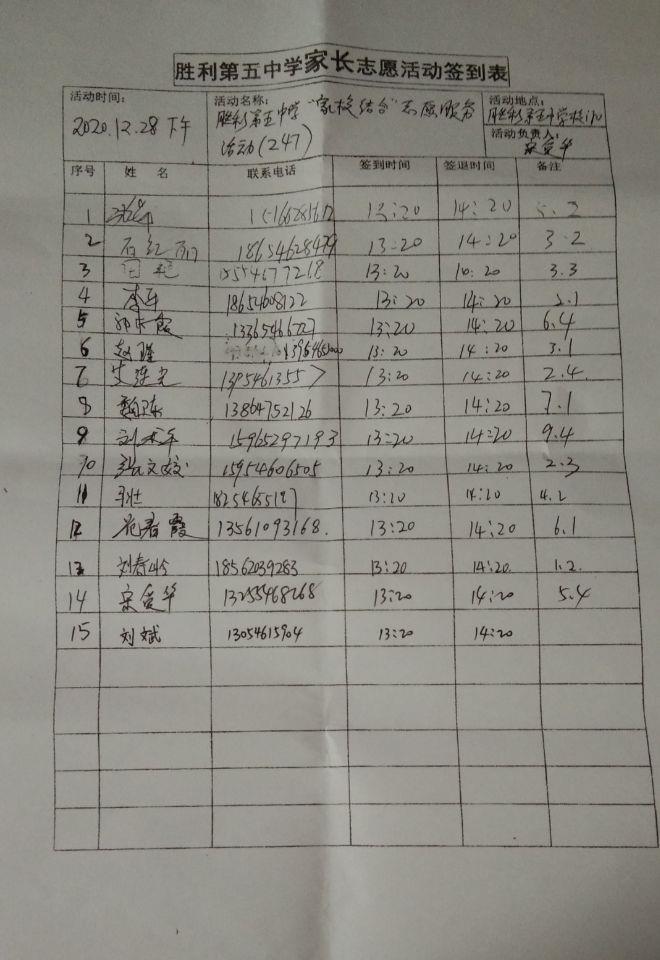 胜利第五中学家长志愿活动签到表
活动时间: 活动名称: 活动地点:
2020.12.28 下午 胜利第五中学"家校结合"志愿服务 胜利第五中学校门口
活动(247) 活动负责人: 宋爱华
序号 姓 名 联系电话 签到时间 签退时间 备注
1 13:20 14:20
2 18654628479 13:20 14:20 3.2
3 13:20 10:20 3.3
4 18654608122 13:20 14:20
5 13:20 14:20 6.4
6 赵瑾 13:20 14:20 3.1
7 13954613557 13:20 14:20 2.4
8 13864752126 13:20 14:20 7.1
9 15965297193 13:20 14:20 9.4
10 张文姣 15954606505 13:20 14:20 2.3
11 王壮 13:20 14:20 4.2
12 花春霞 13561093168. 13:20 14:20 6.1
13 刘春岭 18562039283 13:20 14:20. 1.2.
14 宋爱华 13255468268 13:20 14:20 5.4
15 刘斌 13054615904 13:20 14:20